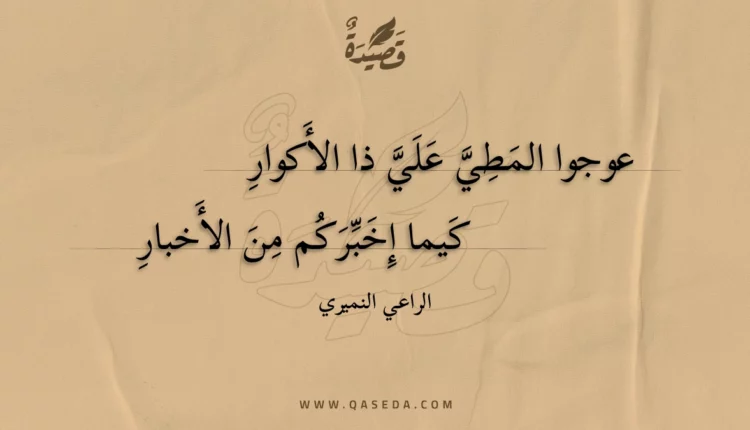 قَصِيدَةٌ
عوجوا المَطِيَّ عَلَيَّ ذا الأَكوارِ
كَيما إِخَبِّرَكُم مِنَ الأَخبارِ
الراعي النميري
WWW.QASEDA.COM